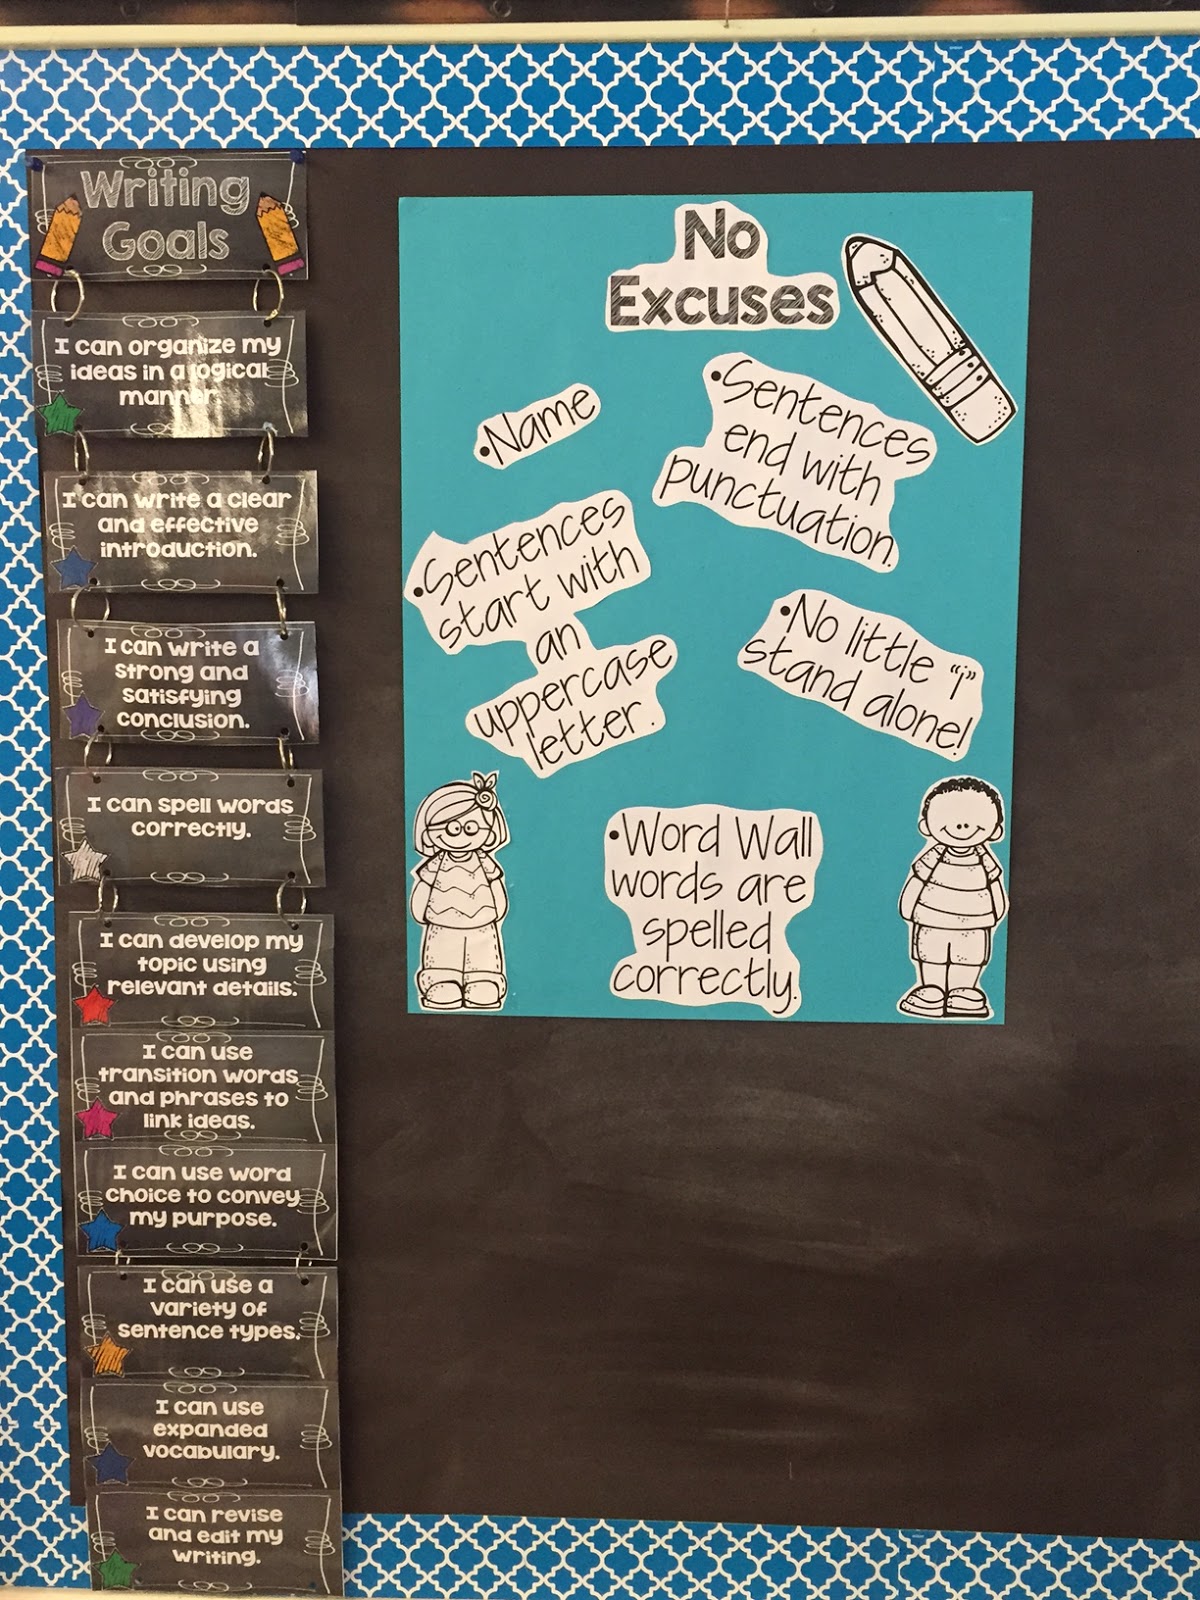 Writing
Goals
I can organize my
ideas in a logical
manner.
I can write a clear
and effective
introduction.
I can write a
strong and
satisfying
conclusion.
I can spell words
correctly.
I can develop my
topic using
relevant details.
I can use
transition words
and phrases to
link ideas.
I can use word
choice to convey
my purpose.
I can use a
variety of
sentence types.
I can use
expanded
vocabulary.
I can revise
and edit my
writing.
No
Excuses
•Name
•Sentences
end with
punctuation.
•Sentences
start with
an
uppercase
letter.
•No little “i”
stand alone!
•Word Wall
words are
spelled
correctly.